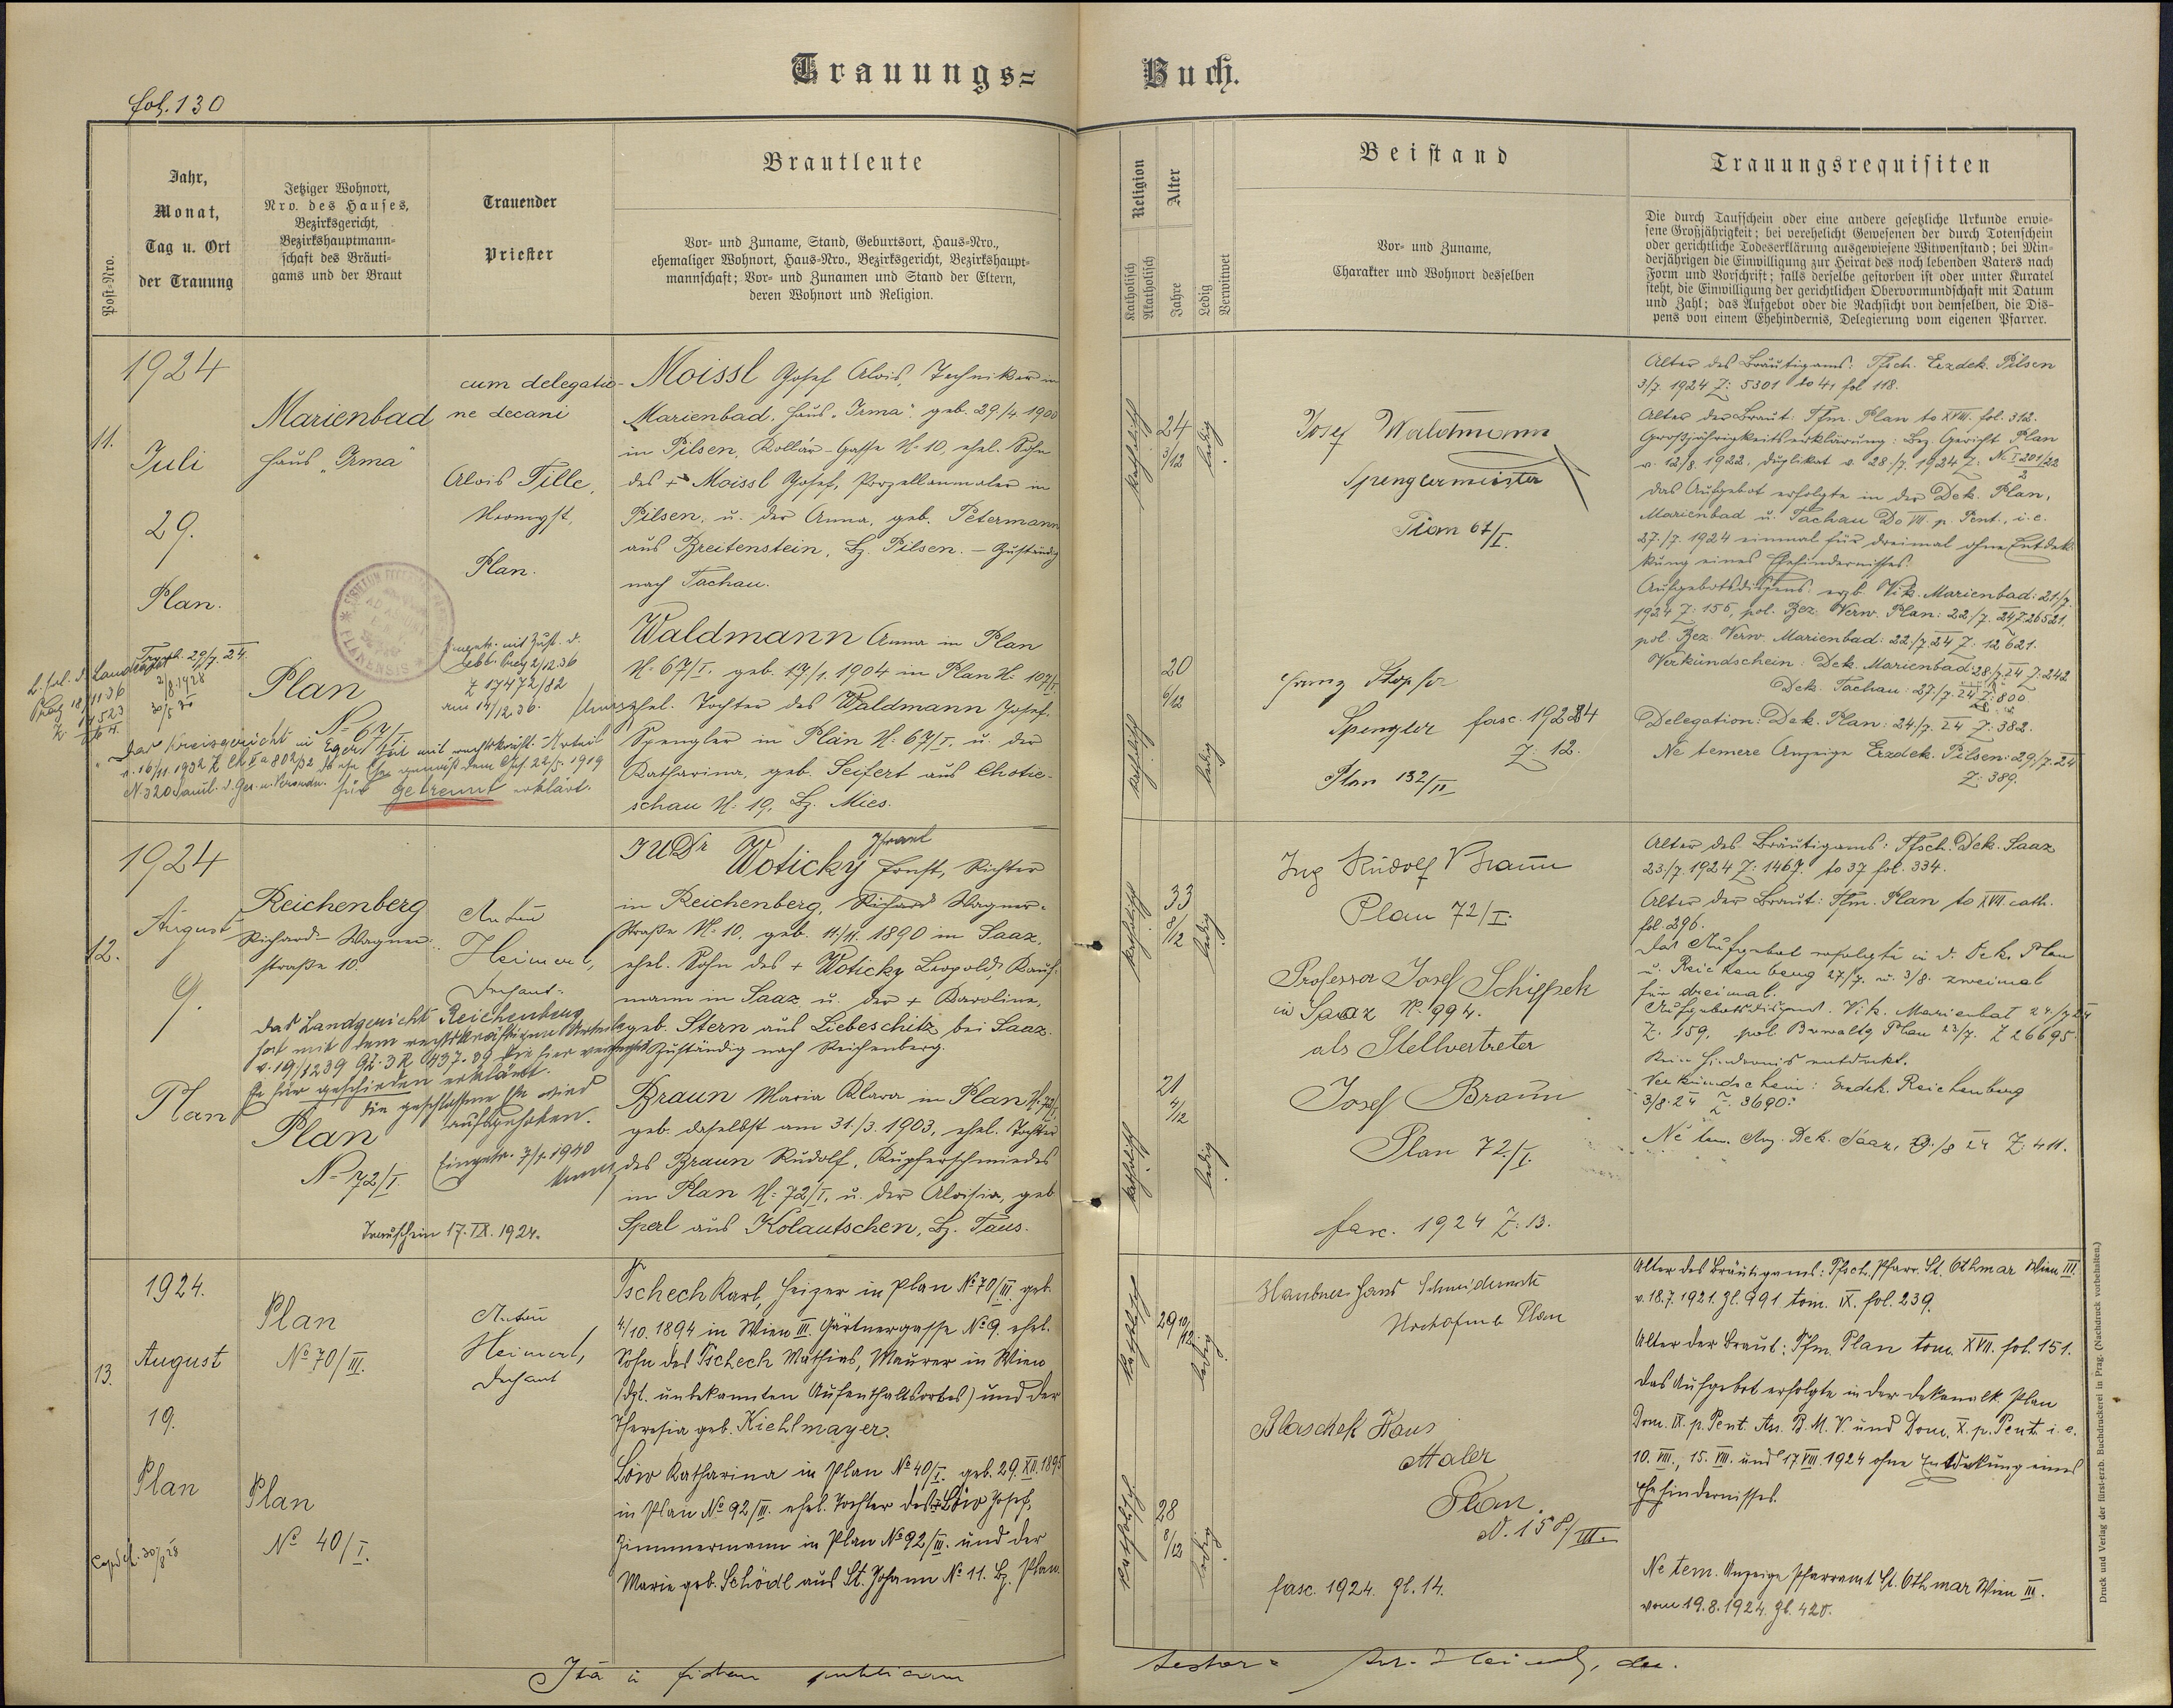 fol. 130
Trauungs=
Buch.
Post-Nro.
Jahr,
Monat,
Tag u. Ort
der Trauung
Jetziger Wohnort,
Nro. des Hauses,
Bezirksgericht,
Bezirkshauptmann-
schaft des Bräuti-
gams und der Braut
Trauender
Priester
Brautleute
Vor- und Zuname, Stand, Geburtsort, Haus-Nro.,
ehemaliger Wohnort, Haus-Nro., Bezirksgericht, Bezirkshaupt-
mannschaft; Vor- und Zunamen und Stand der Eltern,
deren Wohnort und Religion.
Religion
Katholisch
Akatholisch
Alter
Jahre
Ledig
Verwitwet
Beistand
Vor- und Zuname,
Charakter und Wohnort desselben
Trauungsrequisiten
Die durch Taufschein oder eine andere gesetzliche Urkunde erwie-
sene Großjährigkeit; bei verehelicht Gewesenen der durch Totenschein
oder gerichtliche Todeserklärung ausgewiesene Witwenstand; bei Min-
derjährigen die Einwilligung zur Heirat des noch lebenden Vaters nach
Form und Vorschrift; falls derselbe gestorben ist oder unter Kuratel
steht, die Einwilligung der gerichtlichen Obervormundschaft mit Datum
und Zahl; das Aufgebot oder die Nachsicht von demselben, die Dis-
pens von einem Ehehindernis, Delegierung vom eigenen Pfarrer.
11.
1924
Juli
29.
Plan.
Marienbad
Haus „Irma"
cum delegatio-
ne decani
Alois Tille,
Plan.
Moissl Josef Alois, Techniker in
Marienbad, Haus „Irma" geb. 29./4. 1900
in Pilsen, Kollár-Gasse N: 10, ehel. Sohn
des + Moissl Josef, Porzellanmaler in
Pilsen, u. der Anna, geb. Petermann
aus Breitenstein, Bz. Pilsen. – Zuständig
nach Tachau.
Plan
N: 67/I.
Waldmann Anna in Plan
N: 67/I. geb. 17/1. 1904 in Plan N: 107/I.
ehel. Tochter des Waldmann Josef,
Spengler in Plan N: 67/I. u. der
Katharina, geb. Seifert aus Chotie-
schau N: 19, Bz. Mies.
Z 17472/82
am 14/12.36.
Das Kreisgericht in Eger hat mit rechtskräft. Urteil
v. 16/11. 1932
für getrennt erklärt.
katholisch
24
3/12
ledig
20
6/12
katholisch
ledig
Josef Waldmann
Spenglermeister
Plan 67/I.
Franz
Spengler
Plan 132/II
fasc. 1924
Z: 12.
Alter des Bräutigams: Tfsch. Erzdek. Pilsen
3/7. 1924 Z: 5301 to 41 fol 118.
Alter der Braut: Tfm. Plan to XVIII. fol. 312.
Großjährigkeitserklärung: Bez. Gericht Plan
v. 12/8. 1922. Duplikat v. 28./7. 1924 Z: Nc I 201/22
Das Aufgebot erfolgte in der Dek. Plan,
Marienbad u. Tachau Do VII. p. Pent., i. e.
27./7. 1924 einmal für dreimal ohne Entdek-
kung eines Ehehindernisses.
Aufgebotsdispens: erzb. Vik. Marienbad: 21./7.
1924 Z: 155, pol. Bez. Verw. Plan: 22/7. 24 Z: 26521.
pol. Bez. Verw. Marienbad: 22/7. 24 Z: 12621.
Verkündschein: Dek. Marienbad: 28/7. 24 Z: 242
Dek. Tachau: 27/7. 24 Z: 800.
Delegation: Dek. Plan: 24/7. 24 Z: 382.
Ne temere Anzeige Erzdek. Pilsen: 29./7. 24
Z: 389.
12.
1924
August
9.
Plan
Reichenberg
Richard-Wagner-
straße 10.
Anton
Heimerl,
Dechant
JUDr Woticky Israel Ernst, Richter
in Reichenberg, Richard Wagner-
Straße N: 10, geb. 11./11. 1890 in Saaz,
ehel. Sohn des + Woticky Leopold, Kauf-
mann in Saaz u. der + Karoline,
geb. Stern aus Liebeschitz bei Saaz.
Zuständig nach Reichenberg.
Das Landgericht Reichenberg
hat mit dem rechtskräftigen Urteile
v. 19/12 39 Gz. 3 R 437.39 die hier vermerkte
Ehe für geschieden erklärt.
Die geschlossene Ehe wird
aufgehoben.
Eingetr. 7/1. 1940
Plan
N: 72/I.
Trauschein 17. IX. 1924.
Braun Maria Klara in Plan N: 72/I.
geb. daselbst am 31./3. 1903, ehel. Tochter
des Braun Rudolf, Kupferschmiedes
in Plan N: 72/I, u. der Aloisia, geb
Sperl aus Kolautschen, Bz. Taus.
katholisch
33
8/12
ledig
21
4/12
katholisch
ledig
Ing Rudolf Braun
Plan 72/I.
Professor Josef Schippek
in Saaz N: 994.
als Stellvertreter
Josef Braun
Plan 72/I.
fasc. 1924 Z: 13.
Alter des Bräutigams: Tfsch. Dek. Saaz
23/7. 1924 Z: 1467. to 37 fol. 334.
Alter der Braut: Tfm. Plan to XVII. cath.
fol. 296.
Das Aufgebot erfolgte in d. Dek. Plan
u. Reichenberg 27/7. u. 3/8. zweimal
für dreimal.
Aufgebotsdispens. Vik. Marienbad 24/7 24
Z. 159, pol. Plan 23/7. Z 26695.
Kein Hindernis entdeckt.
Verkündschein: Erzdek. Reichenberg
3/8. 24 Z. 3690.
Ne tem. Anz. Dek. Saaz, 9./8 24 Z: 411.
13.
1924.
August
19.
Plan
Plan
N° 70/III.
Anton
Heimerl,
Dechant
Tschech Karl, Heizer in Plan N° 70/III geb.
4/10. 1894 in Wien III. Gärtnergasse N° 9. ehel.
Sohn des Tschech Mathias, Maurer in Wien
(dzt. unbekannten Aufenthaltsortes) und der
Theresia geb. Kiehlmayer.
Plan
N° 40/I.
Löw Katharina in Plan N° 40/I. geb. 29. XII. 1895
in Plan N° 92/III. ehel. Tochter des + Löw Josef,
Zimmermann in Plan N° 92/III. und der
Marie geb. Schödl aus St. Johann N° 11. Bz. Plan.
katholisch
29 10/12
ledig
katholisch
28
8/12
ledig
Haubner Hans
Plan
Blaschek Hans
Maler
Plan.
N. 158/III.
fasc. 1924. Zl. 14.
Alter des Bräutigams: Tfsch. Pfarr. St. Othmar Wien III.
v. 18.7. 1921. Zl. 991 tom. IX. fol. 239.
Alter der Braut: Tfm. Plan tom. XVII. fol. 151.
Das Aufgebot erfolgte in der Dekanalk. Plan
Dom. IX. p. Pent. As. B. M. V. und Dom. X. p. Pent. i. e.
10. VIII., 15. VIII. und 17. VIII. 1924 ohne Entdekung eines
Ehehindernisses.
Ne tem. Anzeige Pfarramt St. Othmar Wien III.
vom 19. 8. 1924. Zl. 420.
Druck und Verlag der fürst-erzb. Buchdruckerei in Prag. (Nachdruck vorbehalten.)
Ita in fidem publicam
testor: Ant. Heimerl, dec.